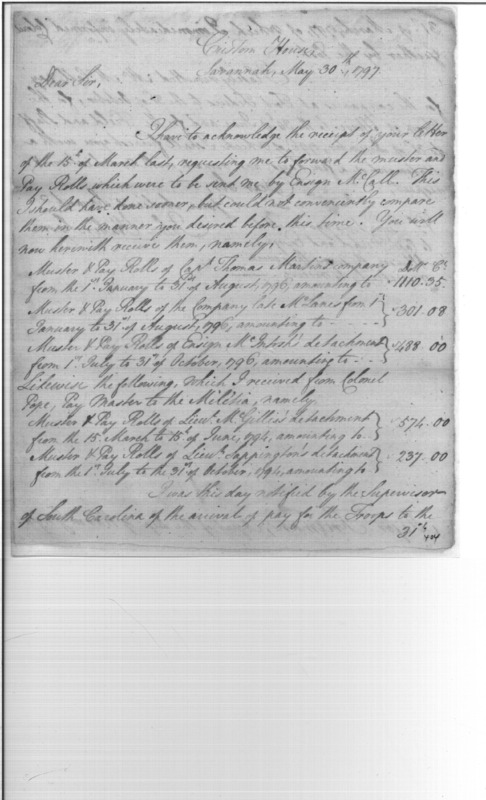 Custom House
Savannah, May 30th, 1797.
Dear Sir,
I have to acknowledge the receipt of your letter
of the 15th of March last, requesting me to forward the muster and
Pay Rolls, which were to be send me by Ensign McCall. This
I should have done sooner, but could not conveniently compare
them in the manner you desired before, this time. You will
now herewith receive them, namely,
Muster & Pay Rolls of Capt. Thomas Martins company
from the 1st January to 31st of August, 1796, amounting to 1110.35.
Muster & Pay Rolls of the Company late from 1st
January to 31st of August, 1796, amounting to - - 301.08
Muster & Pay Rolls of Ensign McIntosh's detachment
from 1st July to 31st of October, 1796, amounting to - - 488.00
Likewise the following, which I received from Colonel
Pope, Pay Master to the Militia, namely,
Muster & Pay Rolls of Lieut. McGillies's detachment
from the 15. March to 15th of June, 1794, amounting to 574.00
Muster & Pay Rolls of Lieut. Sappington's detachment
from the 1st July to the 31st of October, 1794, amounting to 237.00
I was this day notified by the Supervisor
of South Carolina of the arrival of pay for the Troops to the
31st